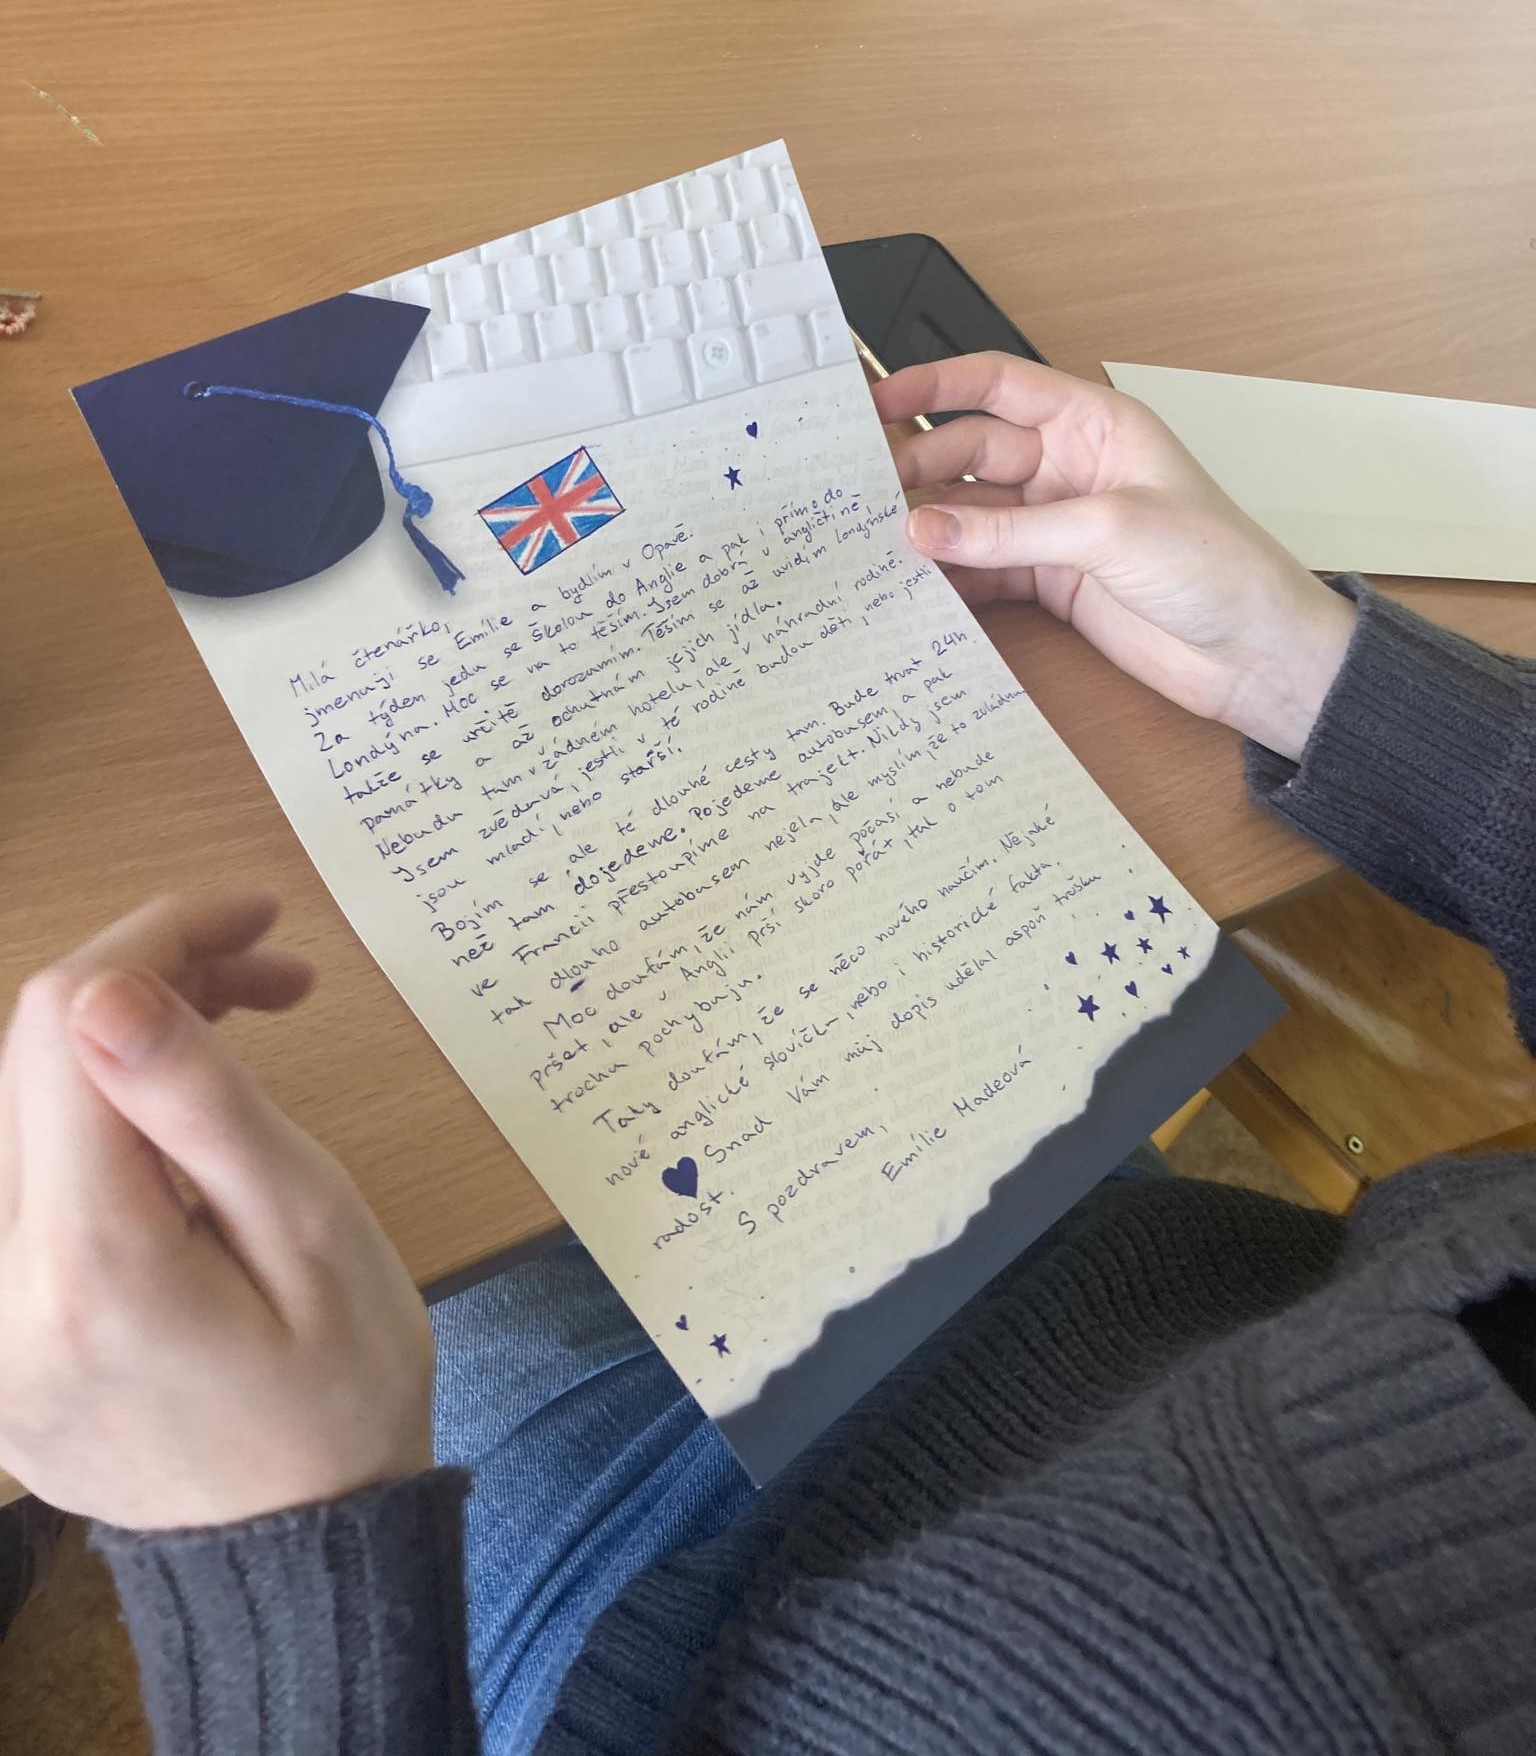 Milá čtenářko,
jmenuji se Emílie a bydlím v Opavě.
Za týden jedu se školou do Anglie a pak i přímo do
Londýna. Moc se na to těším. Jsem dobrá v angličtině,
takže se určitě dorozumím. Těším se až uvidím londýnské
památky a až ochutnám jejich jídla.
Nebudu tam v žádném hotelu, ale v náhradní rodině.
Jsem zvědavá, jestli v té rodině budou děti, nebo jestli
jsou mladí, nebo starší.
Bojím se ale té dlouhé cesty tam. Bude trvat 24h
než tam dojedeme. Pojedeme autobusem, a pak
ve Francii přestoupíme na trajekt. Nikdy jsem
tak dlouho autobusem nejela, ale myslím, že to zvládnu
Moc doufám, že nám vyjde počasí a nebude
pršet, ale v Anglii prší skoro pořát, tak o tom
trochu pochybuju.
Taky doufám, že se něco nového naučím. Nějaké
nové anglické slovíčka, nebo i historické fakta.
Snad Vám můj dopis udělal aspoň trošku
radost.
S pozdravem,
Emílie Madeová